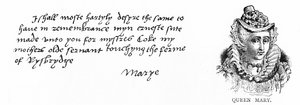 I shall moste hartyly desyre the same to
have in remembrance myn erneste sute
made unto you for mystres Coke my
mothers olde servant touchyng the ferme
of Rysbrydge
Marye
QUEEN MARY.